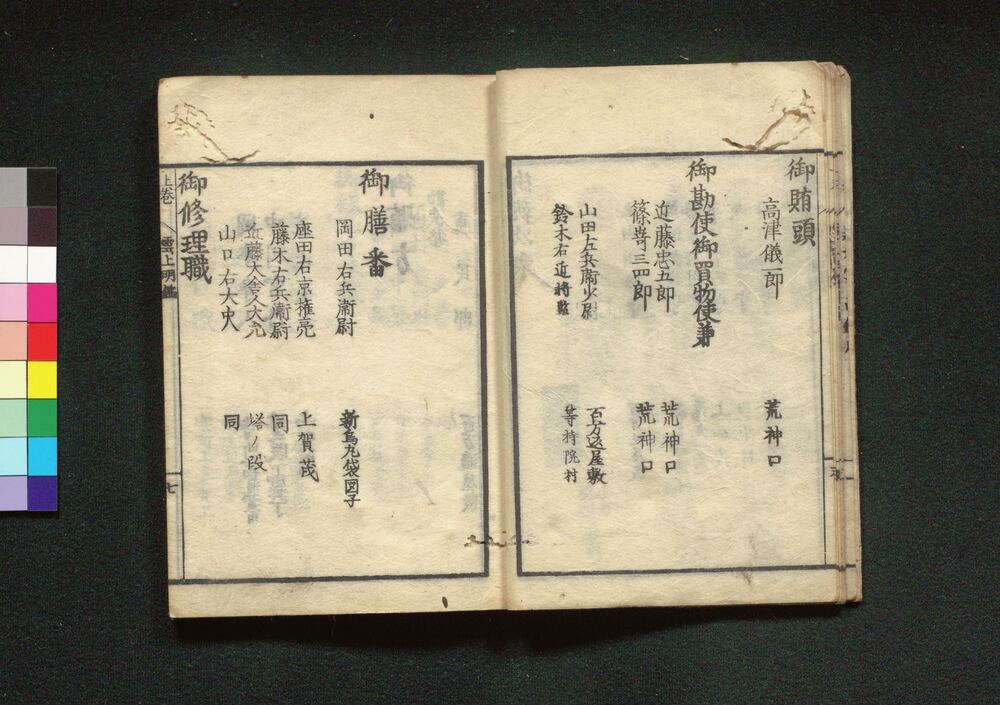 御賄頭
高津儀一郎 荒神口
御勘使御買物使兼
近藤忠五郎 荒神口
篠嵜三四郎 荒神口
山田左兵衞少尉 百万辺屋敷
鈴木右近将監 等持院村
御膳番
岡田右兵衞尉 新烏丸袋図子
座田右京権亮 上賀茂
藤木右兵衞尉 同
近藤大舎人大允 塔ノ段
山口右大史 同
御修理職
上巻
雲上明鑑
七